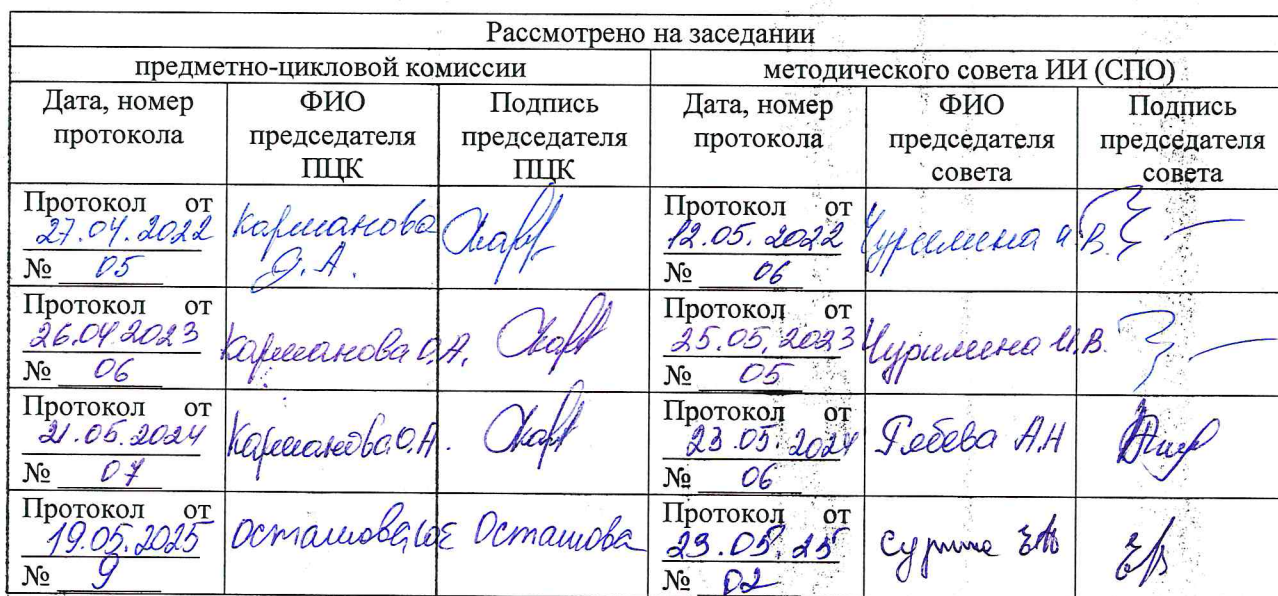 Рассмотрено на заседании
предметно-цикловой комиссии методического совета ИИ (СПО)
Дата, номер протокола ФИО председателя ПЦК Подпись председателя ПЦК Дата, номер протокола ФИО председателя совета Подпись председателя совета
Протокол от 27.04.2022 № 05 Карманова О.А. Протокол от 12.05.2022 № 06 Чурилина И.В.
Протокол от 26.04.2023 № 06 Карманова О.А. Протокол от 25.05.2023 № 05 Чурилина И.В.
Протокол от 21.05.2024 № 07 Карманова О.А. Протокол от 23.05.2024 № 06 А.Н
Протокол от 19.05.2025 № 9 Осташова Ю.Е Осташова Протокол от 29.05.25 № 02